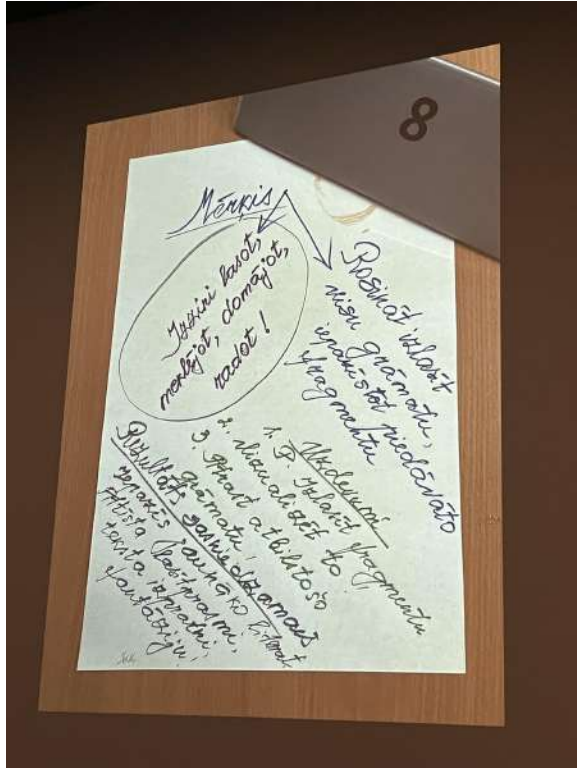 8
Mērķis
Izzini lasot,
meklējot, domājot,
radot!
Rosināt izlasīt
visu grāmatu,
iepazīstot piedāvāto
fragmentu
Uzdevumi
1. P. Izlasīt fragmentu
2. Vizualizēt to
3. atbilstošo
grāmatu,
Rezultāts sasniedzamais
iepazīs jaunāko literat.
Attīsta lasītprasmi,
teksta izpratni,
fantāziju!